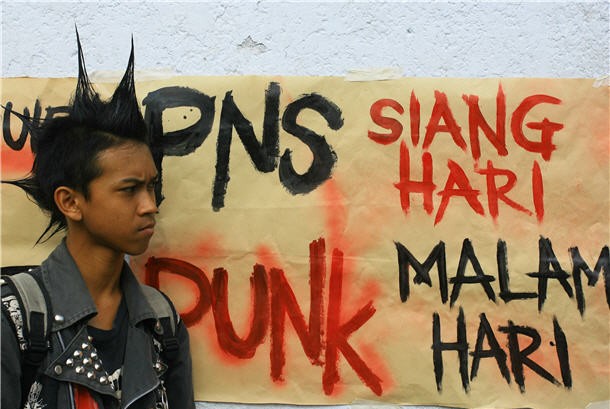 PNS SIANG HARI
PUNK MALAM HARI